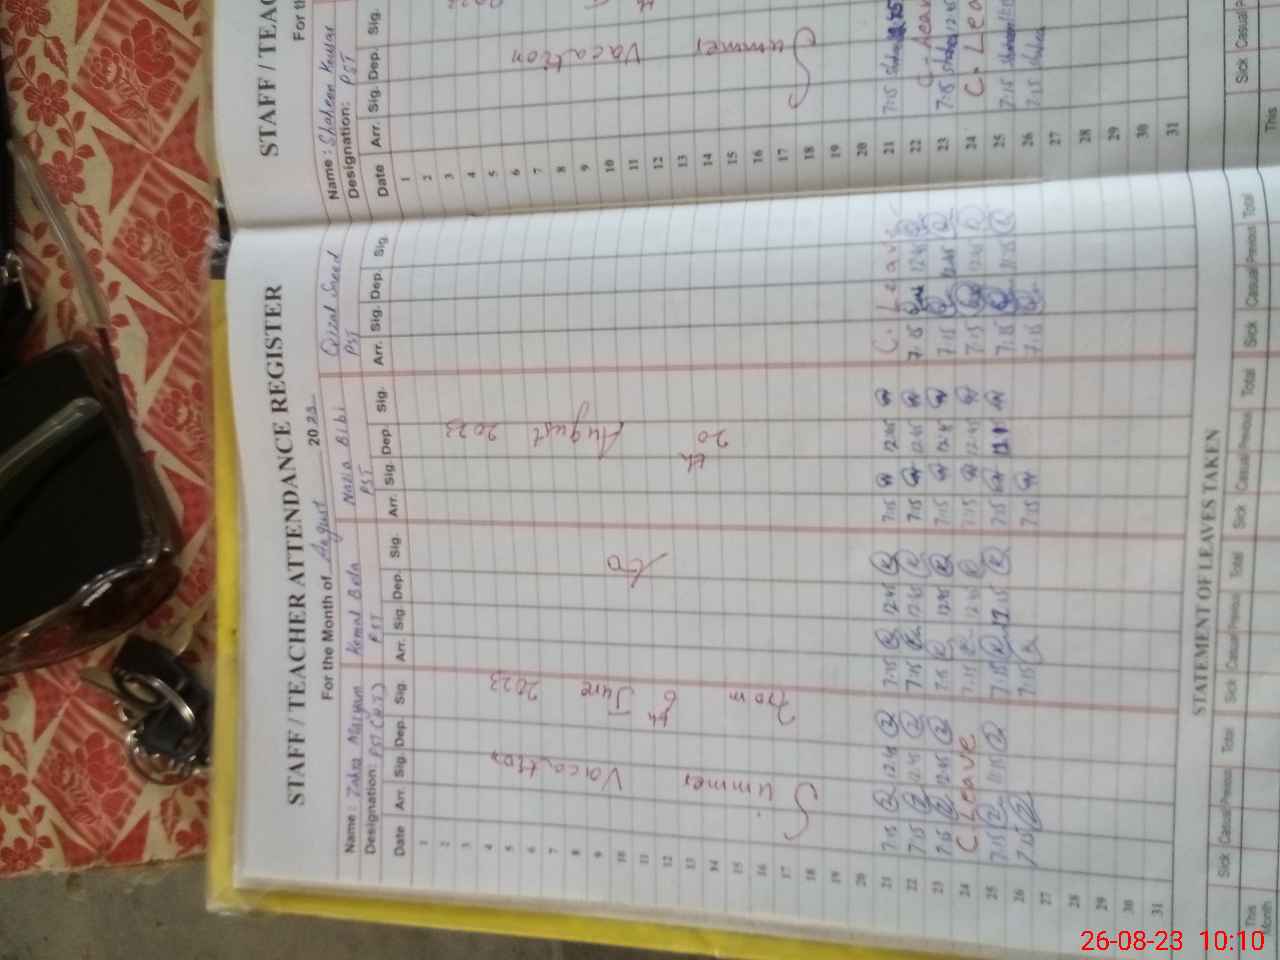 STAFF / TEACHER ATTENDANCE REGISTER
For the Month of August 2023
Name: Zahra Maryam Komal Bela Nadia Bibi
Designation: PST (H.T) PST PST PST
Date Arr. Sig. Dep. Sig. Arr. Sig. Dep. Sig. Arr. Sig. Dep. Sig. Arr. Sig. Dep. Sig.
1
2
3
4
5
6
7
8
9
10
11
12
13
14
15
16
17
18
19
20
Summer Vacation From 6th June 2023 To 20th August 2023
21 7:15 12:45 7:15 12:45 7:15 12:45 C. Leave
22 7:15 12:45 7:15 12:45 7:15 12:45 7:15 12:45
23 7:15 12:45 7:15 12:45 7:15 12:45 7:15 12:45
24 C. Leave 7:15 12:45 7:15 12:45 7:15 12:45
25 7:15 11:15 7:15 7:15 7:15 11:15
26 7:15 7:15 7:15 7:15
27
28
29
30
31
STATEMENT OF LEAVES TAKEN
Sick Casual Previous Total Sick Casual Previous Total Sick Casual Previous Total Sick Casual Previous Total
This Month
STAFF / TEAC
For th
Name: Shaheen Kausar
Designation: PST
Date Arr. Sig. Dep. Sig.
1
2
3
4
5
6
7
8
9
10
11
12
13
14
15
16
17
18
19
20
Summer Vacation
21 7:15
22 C. Leav
23 7:15 12:45
24 C. Lea
25 7:15
26 7:15
27
28
29
30
31
Sick Casual
This
26-08-23 10:10